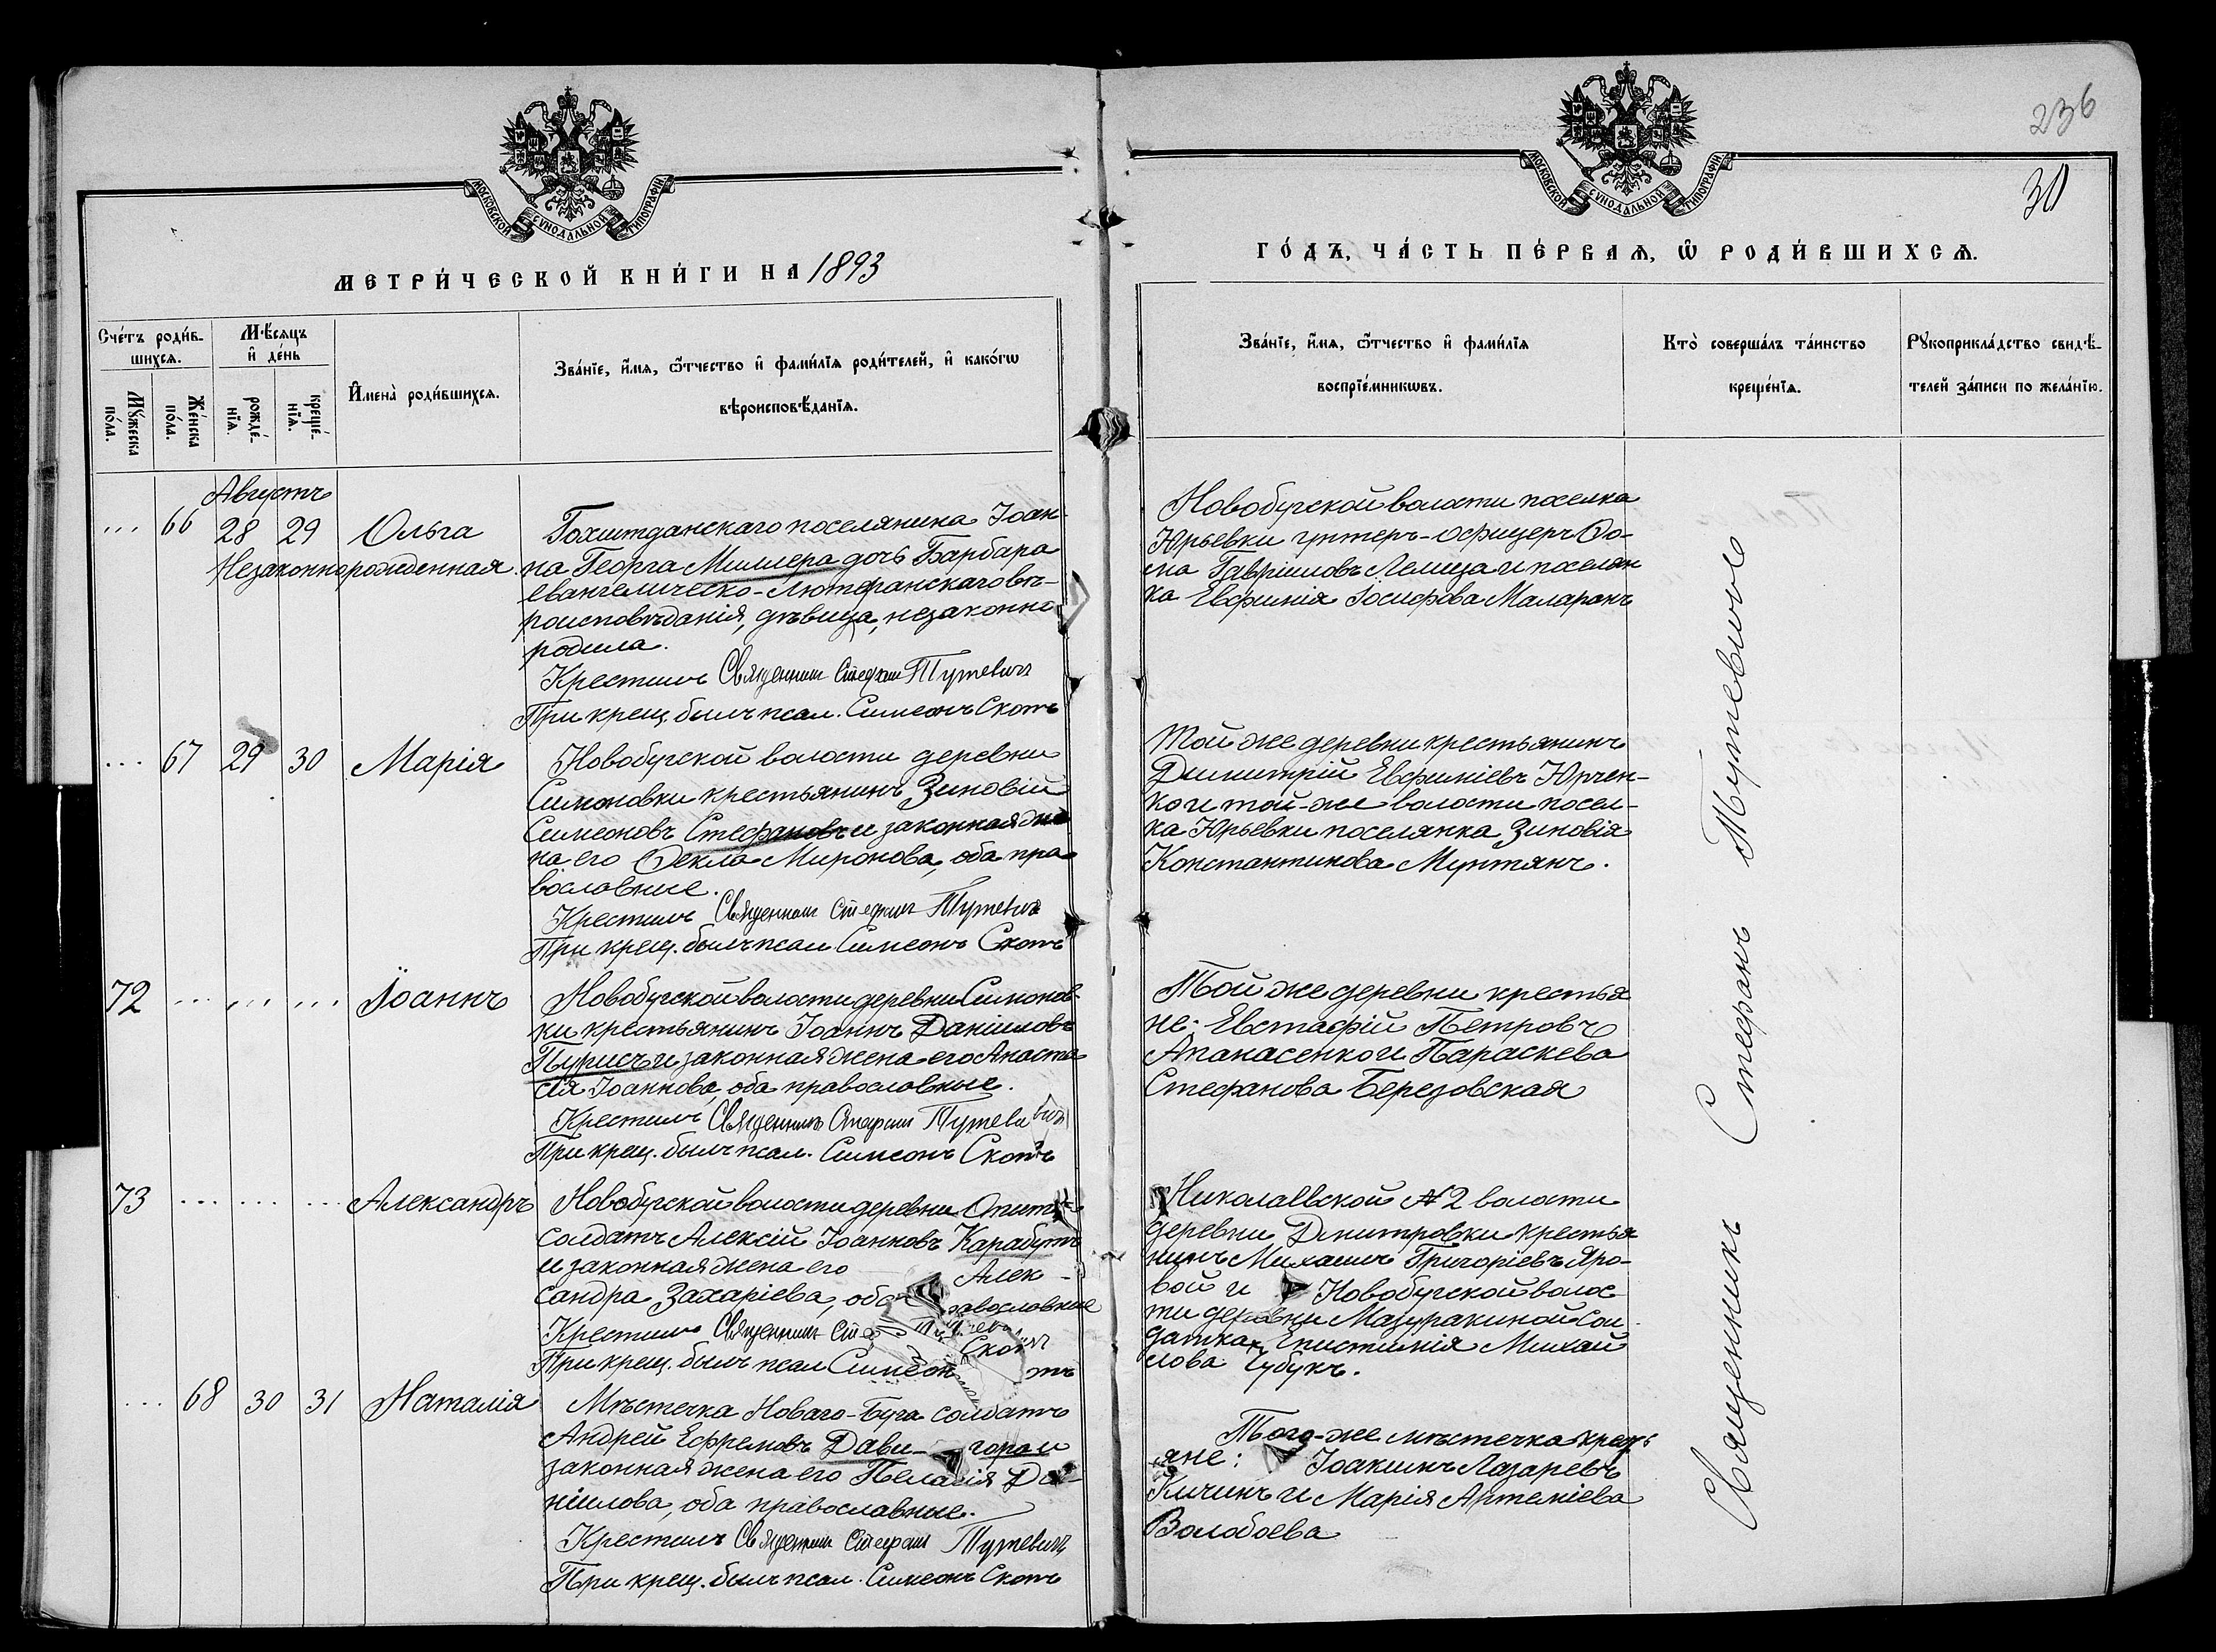 МОСКОВСКОЙ СѴНОДАЛЬНОЙ ТИПОГРАФІИ.
МЕТРИ́ЧЕСКОЙ КНИ́ГИ НА 1893
Сче́тъ роди́в-
шихся.
Мѣ́сяцъ
и҆ де́нь
Мꙋ́жеска
по́ла.
Же́нска
по́ла.
рожде́-
нїѧ.
креще́-
нїѧ.
И҆мена̀ роди́вшихсѧ.
Зва́нїе, и҆́мѧ, ѻ҆́тчество и҆ фами́лїѧ роди́телей, и҆ како́гѡ
вѣроисповѣ́данїѧ.
Августъ
... 66 28 29 Ольга
Незаконнорожденная.
Гохштданскаго поселянина Іоан-
на Георга Миллера дочь Барбара
евангелическо-лютеранскаго вѣ-
роисповѣданія, дѣвица, незаконно
родила.
Крестилъ Священникъ Стефанъ Тутевичъ
При крещ. былъ псал. Симеонъ Скоть
... 67 29 30 Марія
Новобугской волости деревни
Симоновки крестьянинъ Зиновій
Симеоновъ Стефановъ и законная же
на его Ѳекла Миронова, оба пра-
вославные.
Крестилъ Священникъ Стефанъ Тутевичъ
При крещ. былъ псал Симеонъ Скоть
72 ... ... ... Іоаннъ
Новобугской волости деревни Симонов-
ки крестьянинъ Іоаннъ Даніиловъ
Пурисъ и законная жена его Анаста
сія Іоаннова, оба православные.
Крестилъ Священникъ Стефанъ Тутевичъ
При крещ. былъ псал. Симеонъ Скоть
73 ... ... ... Александръ
Новобугской волости деревни
солдатъ Алексій Іоанновъ Карабутъ
и законная жена его Алек-
сандра Захаріева, оба православные
Крестилъ Священникъ
При крещ. былъ псал Симеон Скотъ
... 68 30 31 Наталія
Мѣстечка Новаго-Буга солдатъ
Андрей Ефремовъ Дави-
законная жена его Пелагія Да-
ніилова, оба православные.
Крестилъ Священникъ Стефанъ Тутевичъ
При крещ. былъ псал. Симеонъ Скоть
236
30
МОСКОВСКОЙ СѴНОДАЛЬНОЙ ТИПОГРАФІИ.
ГО́ДЪ, ЧА́СТЬ ПЕ́РВАѦ, Ѡ҆ РОДИ́ВШИХСѦ.
Зва́нїе, и҆́мѧ, ѻ҆́тчество и҆ фами́лїѧ
воспрїе́мникѡвъ.
Кто̀ соверша́лъ та́инство
креще́нїѧ.
Рꙋкоприкла́дство свидѣ́-
телей за́писи по жела́нїю.
Новобугской волости поселка
Юрьевки унтеръ-офицеръ Ѳо-
ма Гавріиловъ Лемеза и поселян
ка Евфимія Іосифова Маларанъ
Той же деревни крестьянинъ
Димитрій Евфиміевъ Юрчен-
ко и той-же волости посел-
ка Юрьевки поселянка Зиновія
Константинова Мунтянъ.
Той же деревни крестья
не: Евстафій Петровъ
Апанасенко и Параскева
Стефанова Березовская
Николаевской №2 волости
деревни Дмитровки крестья
нинъ Михаилъ Григоріевъ Яро-
вой и Новобугской волос
ти деревни Мазуракиной сол
датка Епистимія Михай
лова Чубукъ.
Того-же мѣстечка кресть
яне: Іоакимъ Лазаревъ
Кичинъ и Марія Артеміева
Волобоева
Священникъ Стефанъ Тутевичъ